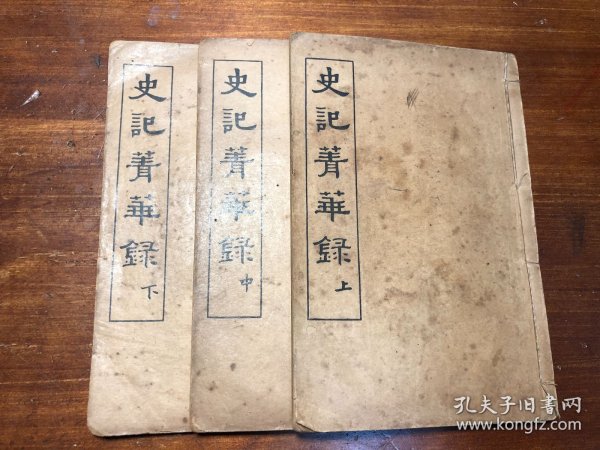 史記菁華録上
史記菁華録中
史記菁華録下
孔夫子旧書网
www.kongfz.com